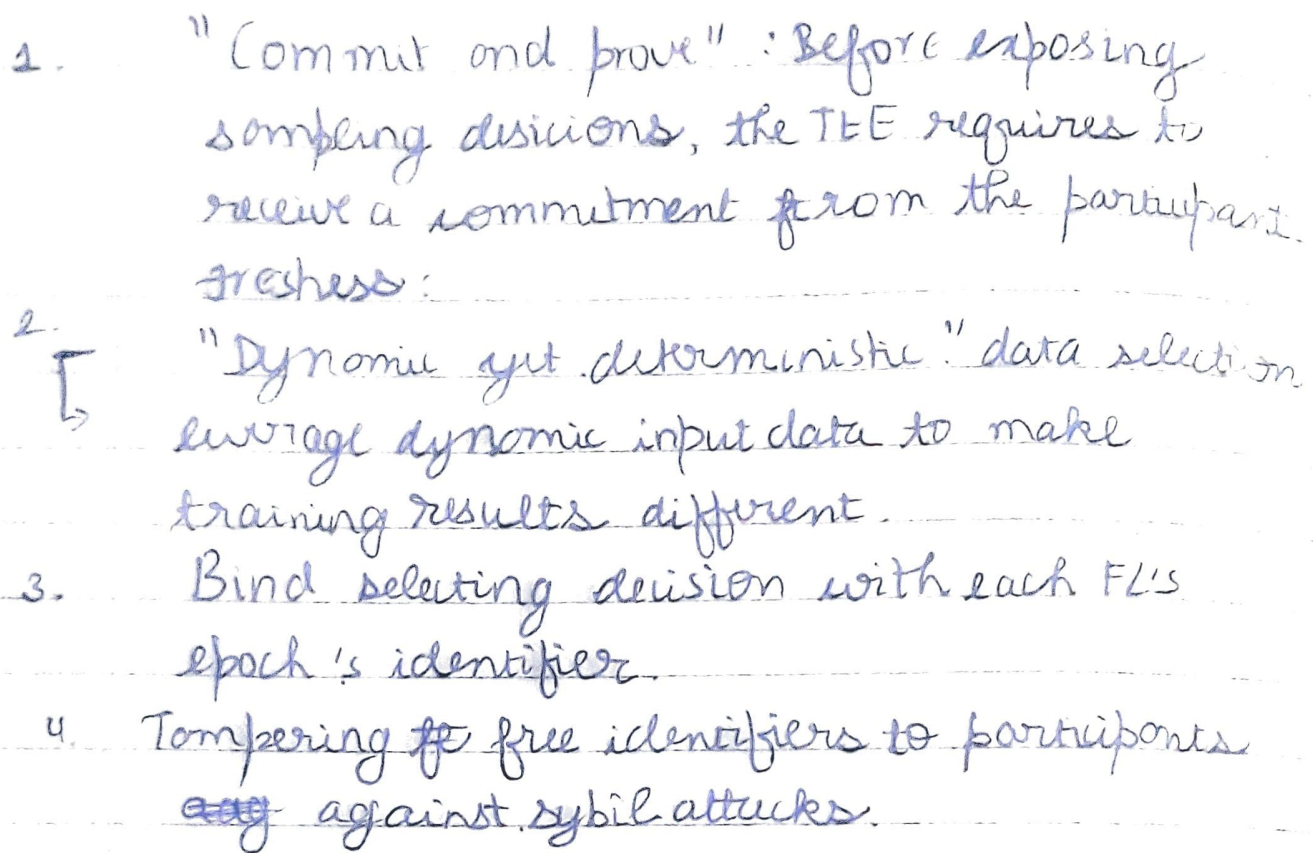 1. "Commit and prove" : Before exposing
sampling disicions, the TEE requires to
receive a commitment from the participant.
Freshess:
2. "Dynamic yet deterministic" data selection
leverage dynamic input data to make
training results different.
3. Bind selecting decision with each FL's
epoch's identifier.
4. Tampering free identifiers to participants
against sybil attacks.